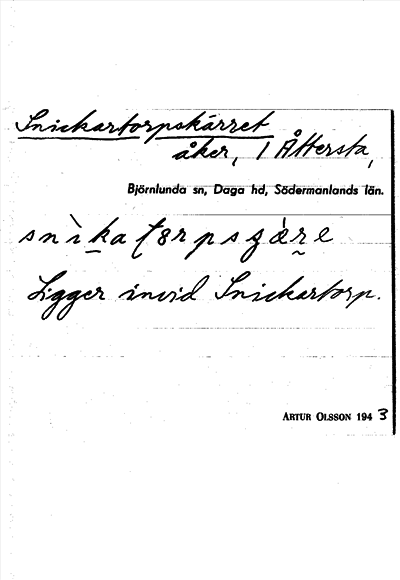 Snickartorpskärret
åker, 1 Åttersta,
Björnlunda sn, Daga hd, Södermanlands län.
Ligger invid Snickartorp.
ARTUR OLSSON 1943